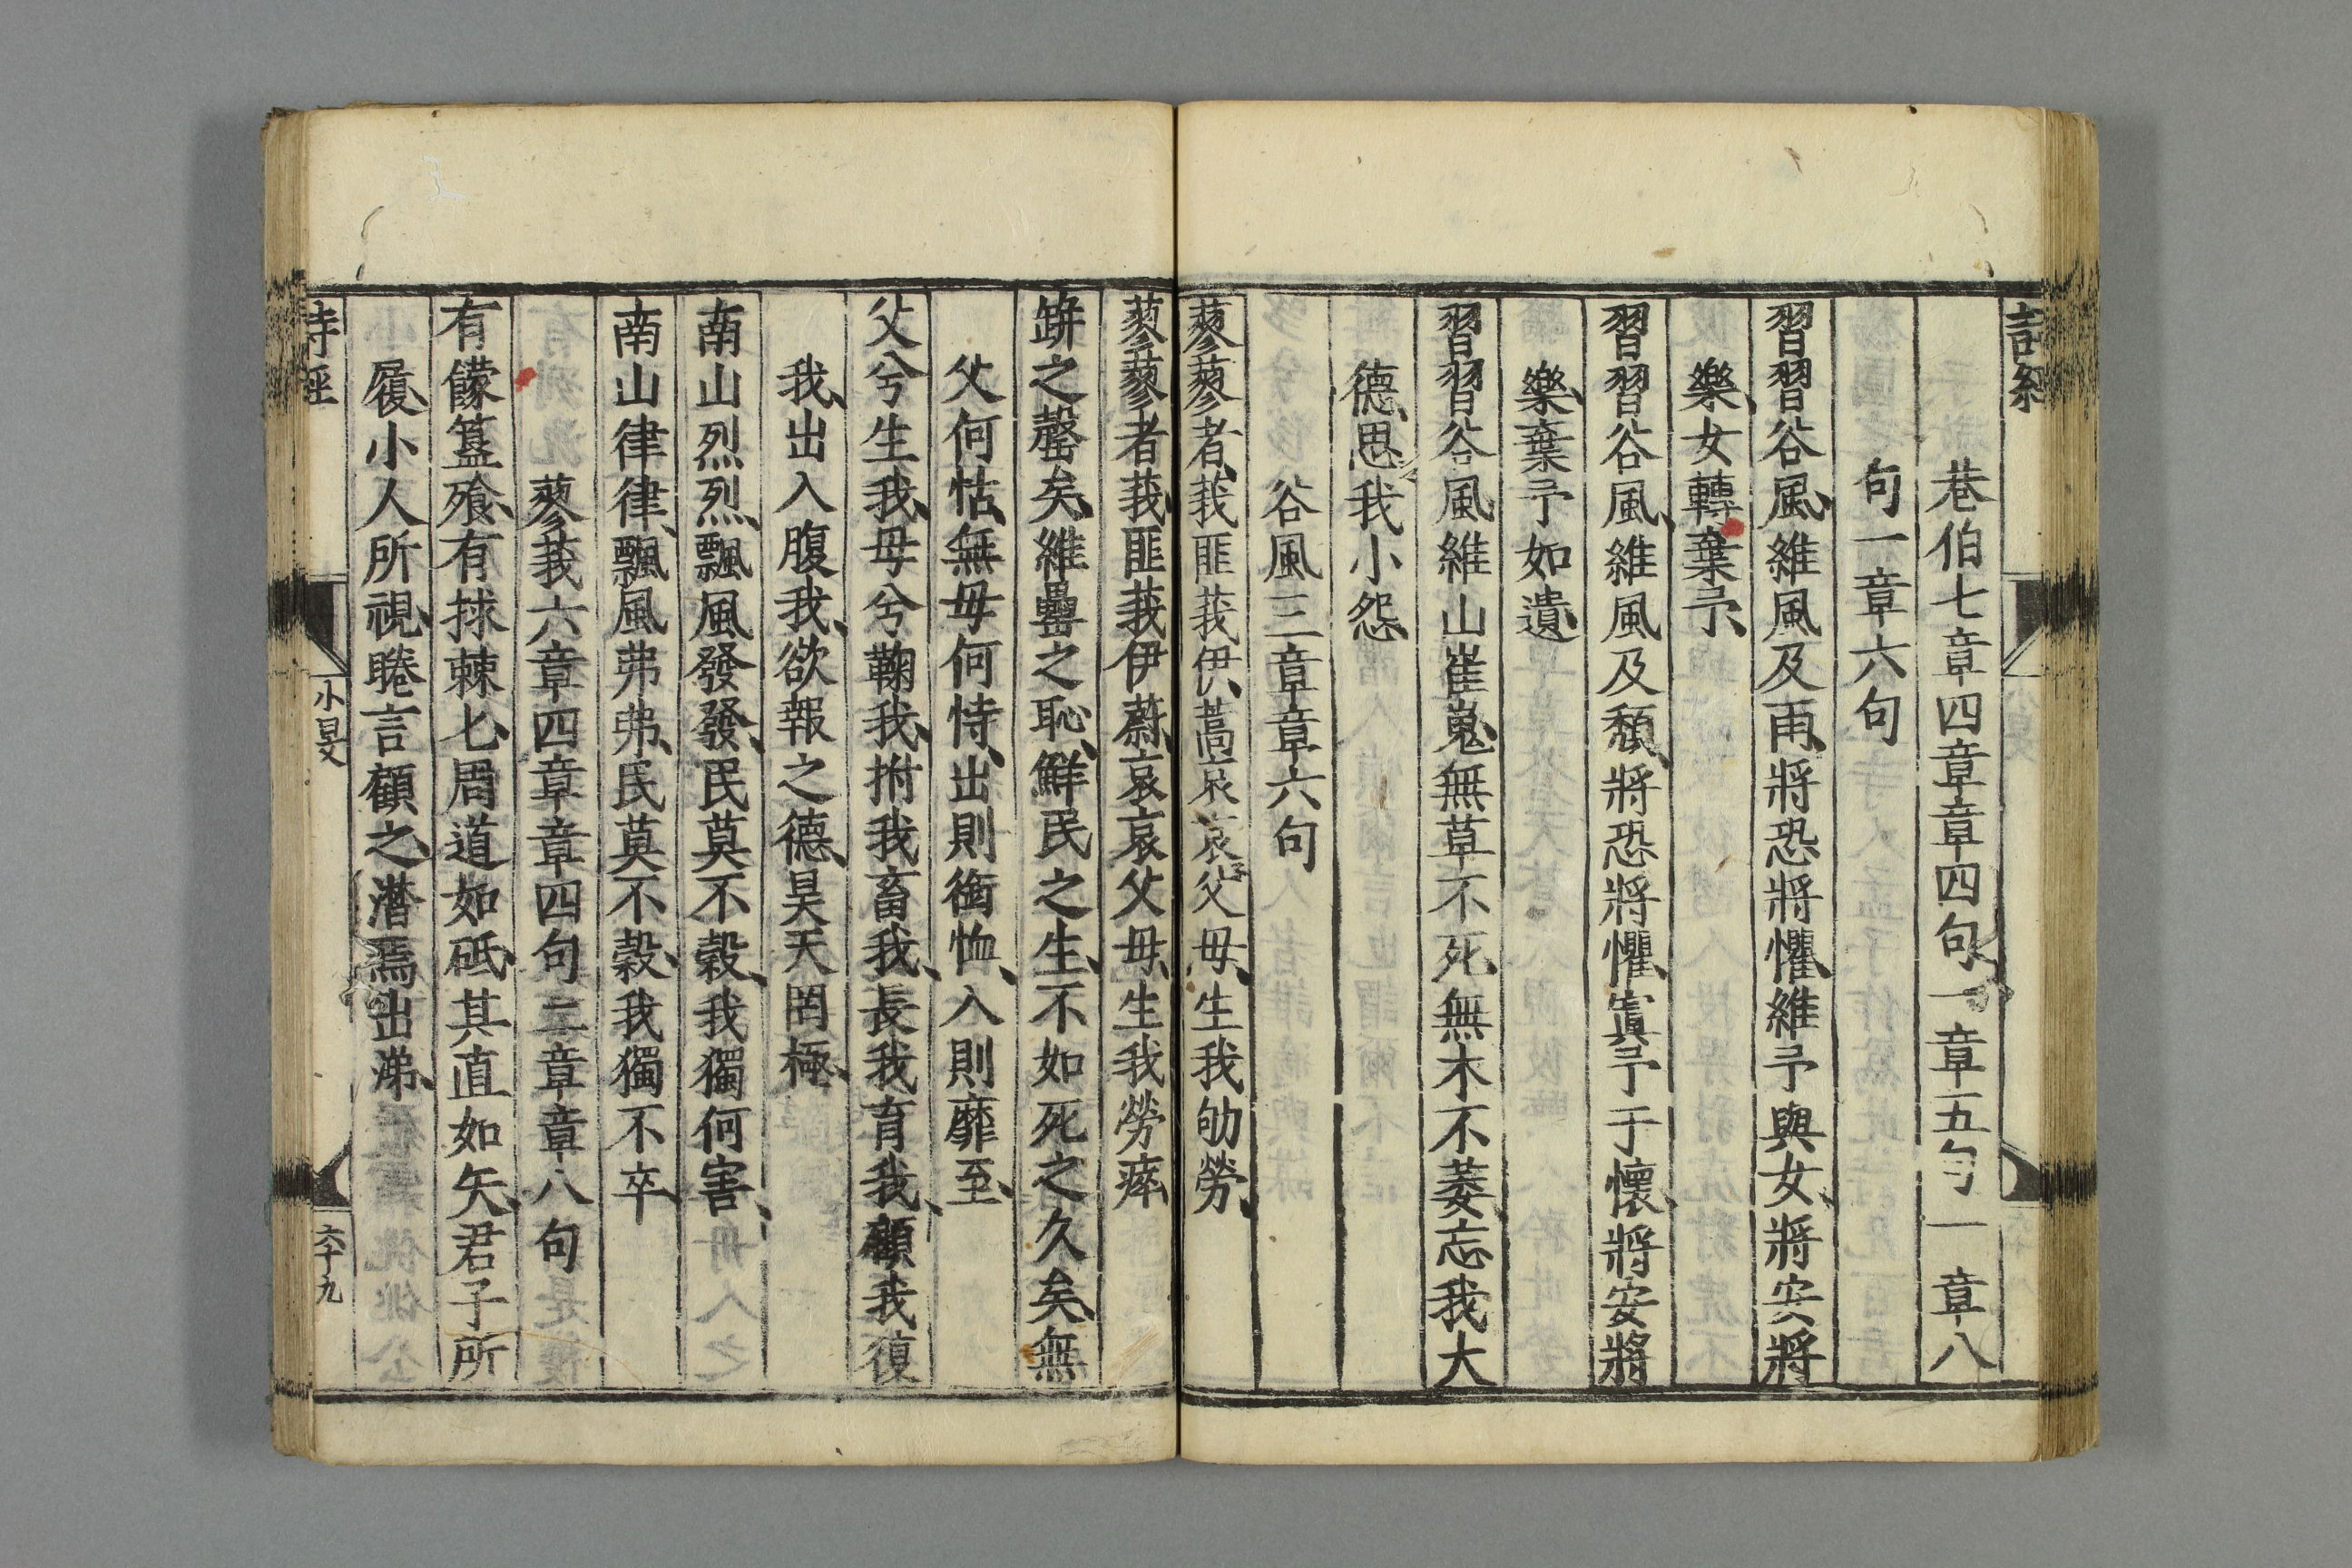 巷伯七章四章章四句一章五句一章八
句一章六句
習習谷風、維風及雨、將恐將懼、維予與女、將安將
樂、女轉棄予、
習習谷風、維風及頹、將恐將懼、寘予于懷、將安將
樂、棄予如遺、
習習谷風維山崔嵬、無草不死、無木不萎、忘我大
德、思我小怨、
谷風三章章六句
蓼蓼者、莪匪莪伊、蒿哀哀父母、生我劬勞、
蓼蓼者莪、匪莪伊蔚、哀哀父母、生我勞瘁
缾之罄矣、維罍之恥、鮮民之生、不如死之久矣、無
父何怙、無母何恃、出則銜恤、入則靡至、
父兮生我、母兮鞠我、拊我畜我、長我育我、顧我復
我、出入腹我、欲報之德、昊天罔極、
南山烈烈、飄風發發、民莫不穀、我獨何害、
南山律律、飄風弗弗、民莫不穀、我獨不卒、
蓼莪六章四章章四句二章章八句
有饛簋飱、有捄棘匕、周道如砥、其直如矢、君子所
履、小人所視、睠言顧之、潸焉出涕、
詩經
小旻
六十九